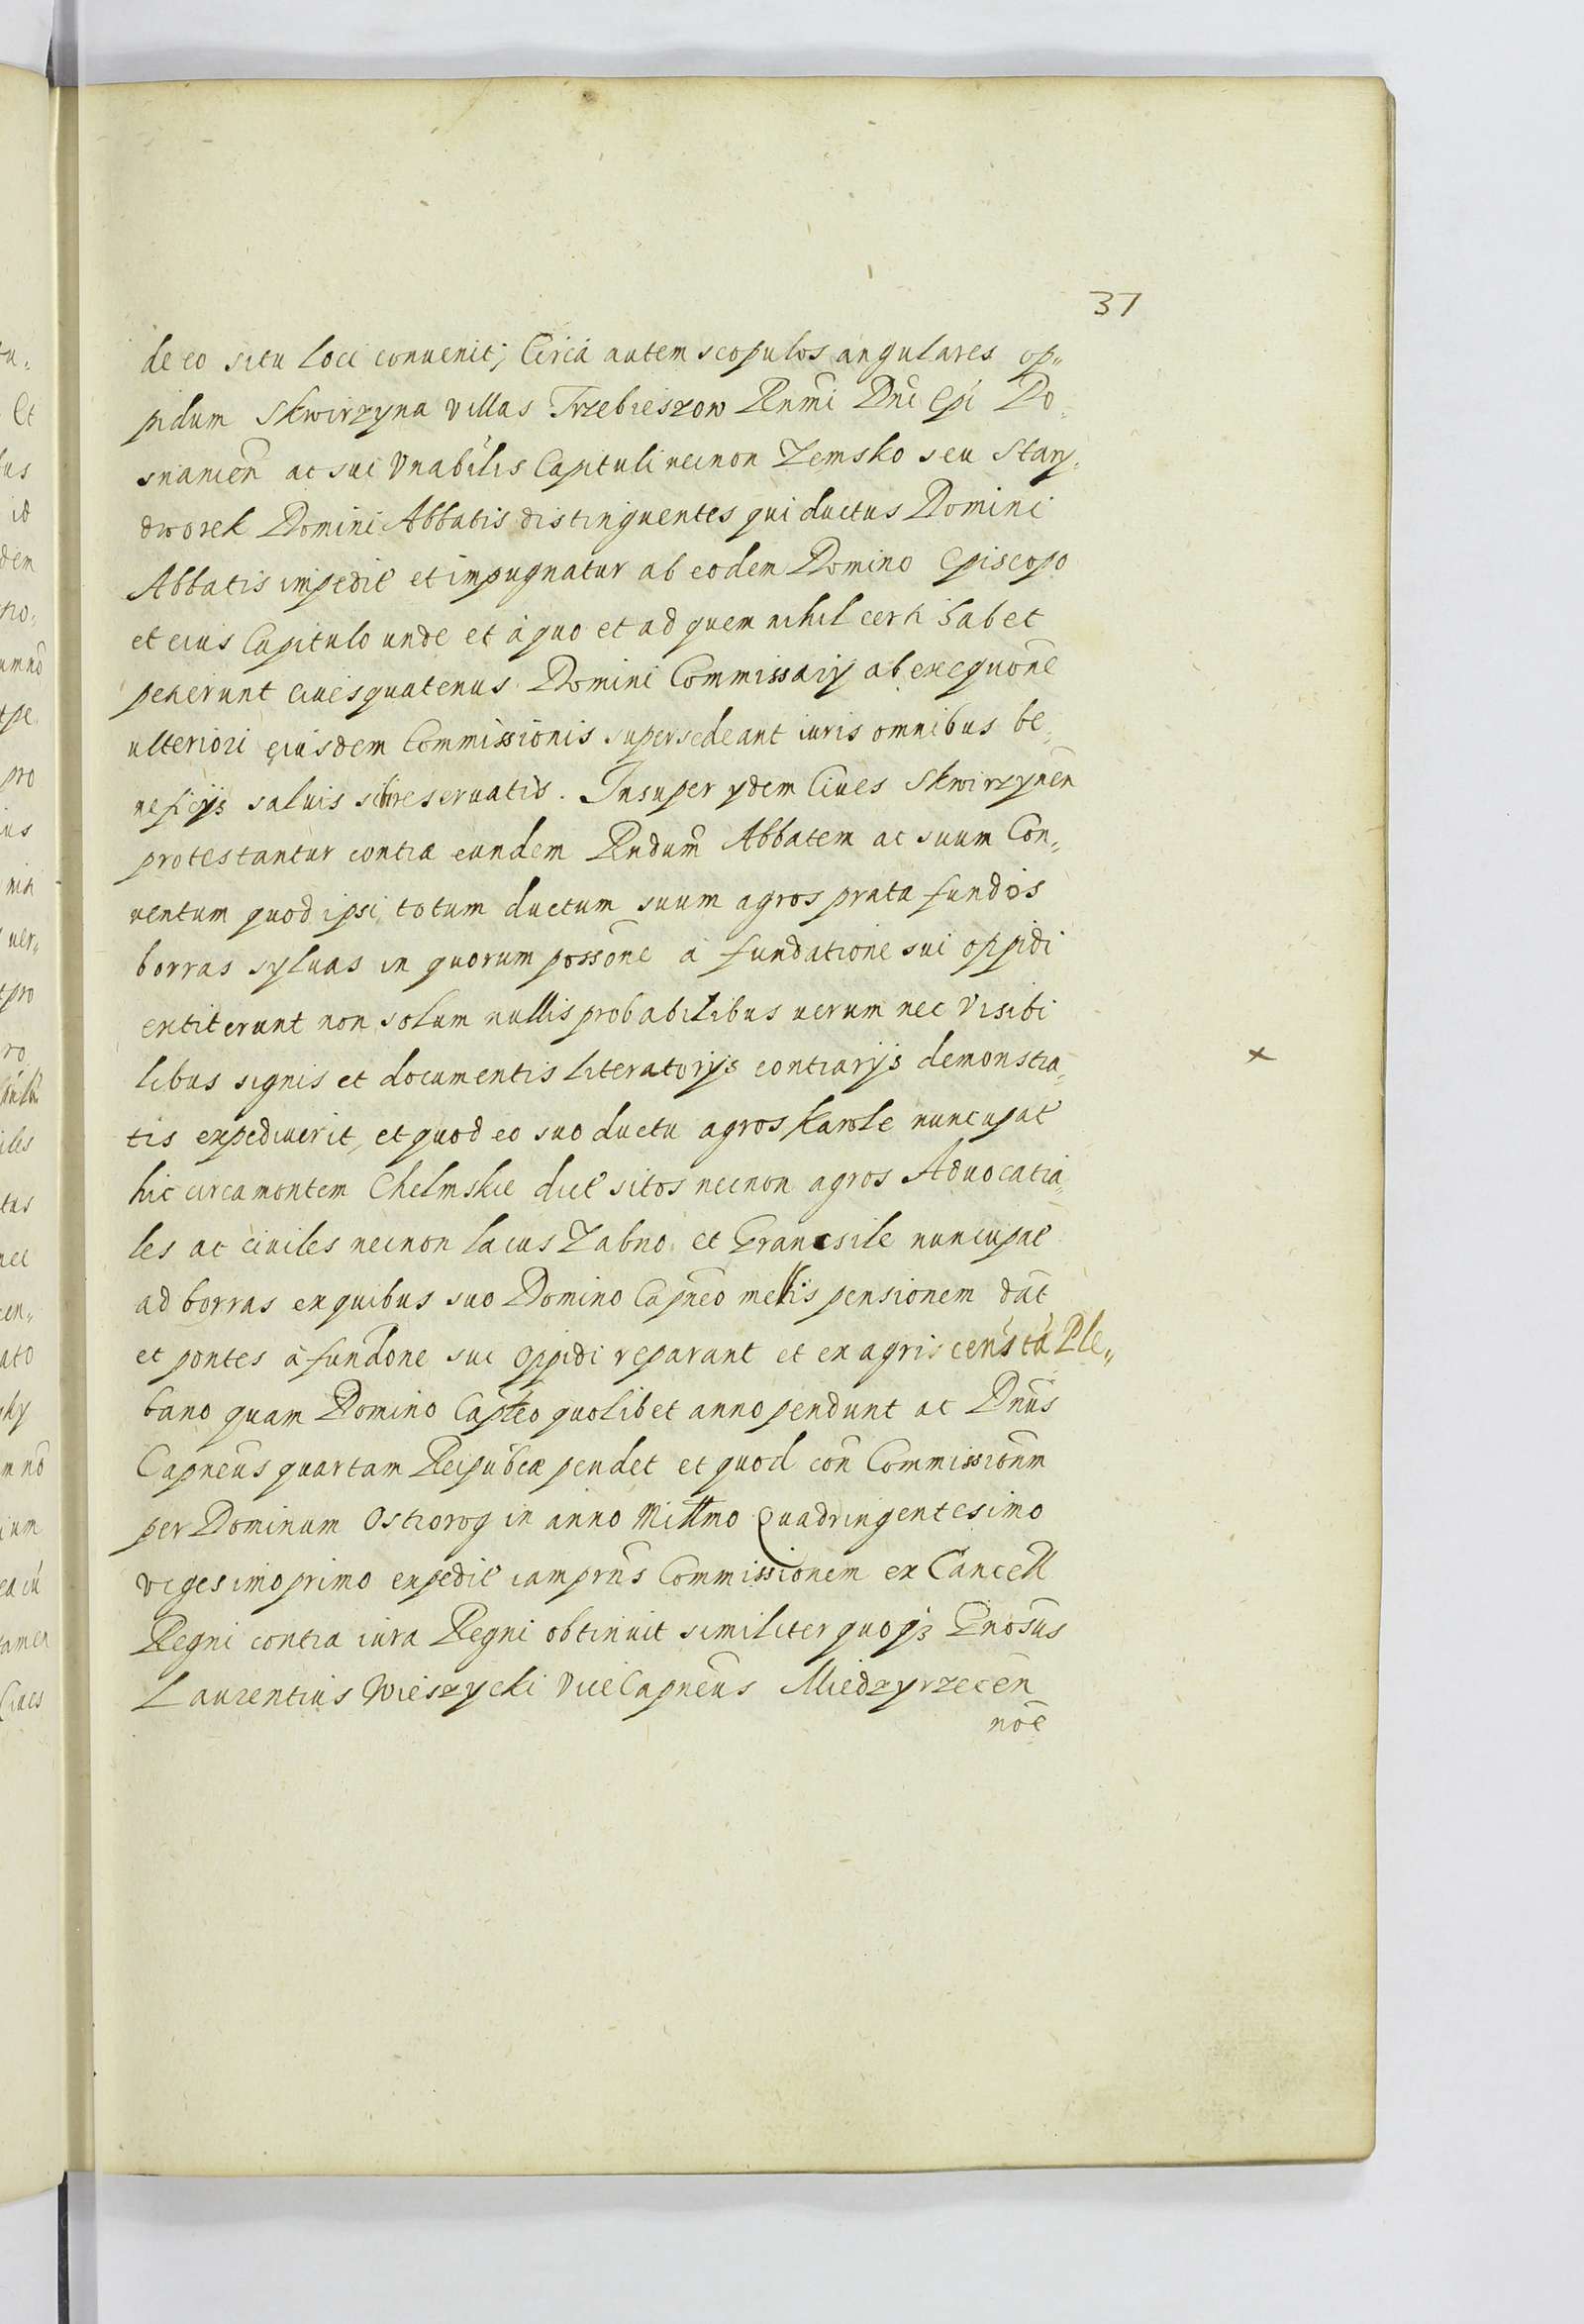 37
de eo situ loci conuenit; Circa autem scopulos angulares op„
pidum Skwirzyna villas Trzebieszow Rnmi Dni Epi Po„
snanien ac sui Vnabilis Capituli necnon Zemsko seu Stary„
dworek Domini Abbatis distinguentes qui ductus Domini
Abbatis impedit et impugnatur ab eodem Domino Episcopo
et eius Capitulo unde et à quo et ad quem nihil certi habet
petierunt ciues quatenus Domini Commissarij ab exequone
ulteriori eiusdem Commissionis supersedeant iuris omnibus be„
neficijs saluis sibi reseruatis. Insuper ydem Ciues Skwirzynen
protestantur contra eundem Rndum Abbatem ac suum Con„
uentum quod ipsi totum ductum suum agros prata fundos
borras syluas in quorum possone à fundatione sui oppidi
extiterunt non solum nullis probabilibus uerum nec visibi
libus signis et documentis literatorijs contrarijs demonstra„
tis expediuerit, et quod eo suo ductu agros Karole nuncupat
hic circa montem Chelmskie dict sitos necnon agros Aduocatia„
les ac ciuiles necnon lacus Zabno et Grancsile nuncupat
ad borras ex quibus suo Domino Capneo mellis pensionem dat
et pontes à fundone sui oppidi reparant et ex agris cens tà Ple„
bano quam Domino Capteo quolibet anno pendunt ac Dnus
Capneus quartam Reipublcæ pendet et quod con Commissionm
per Dominum Ostrorog in anno Millmo Quadringentesimo
vigesimoprimo expedit iam prns Commissionem ex Cancell
Regni contra iura Regni obtinuit similiter quoqȝ Gnosus
Laurentius Wieszycki ViceCapneus Miedzyrzecen
noe
x